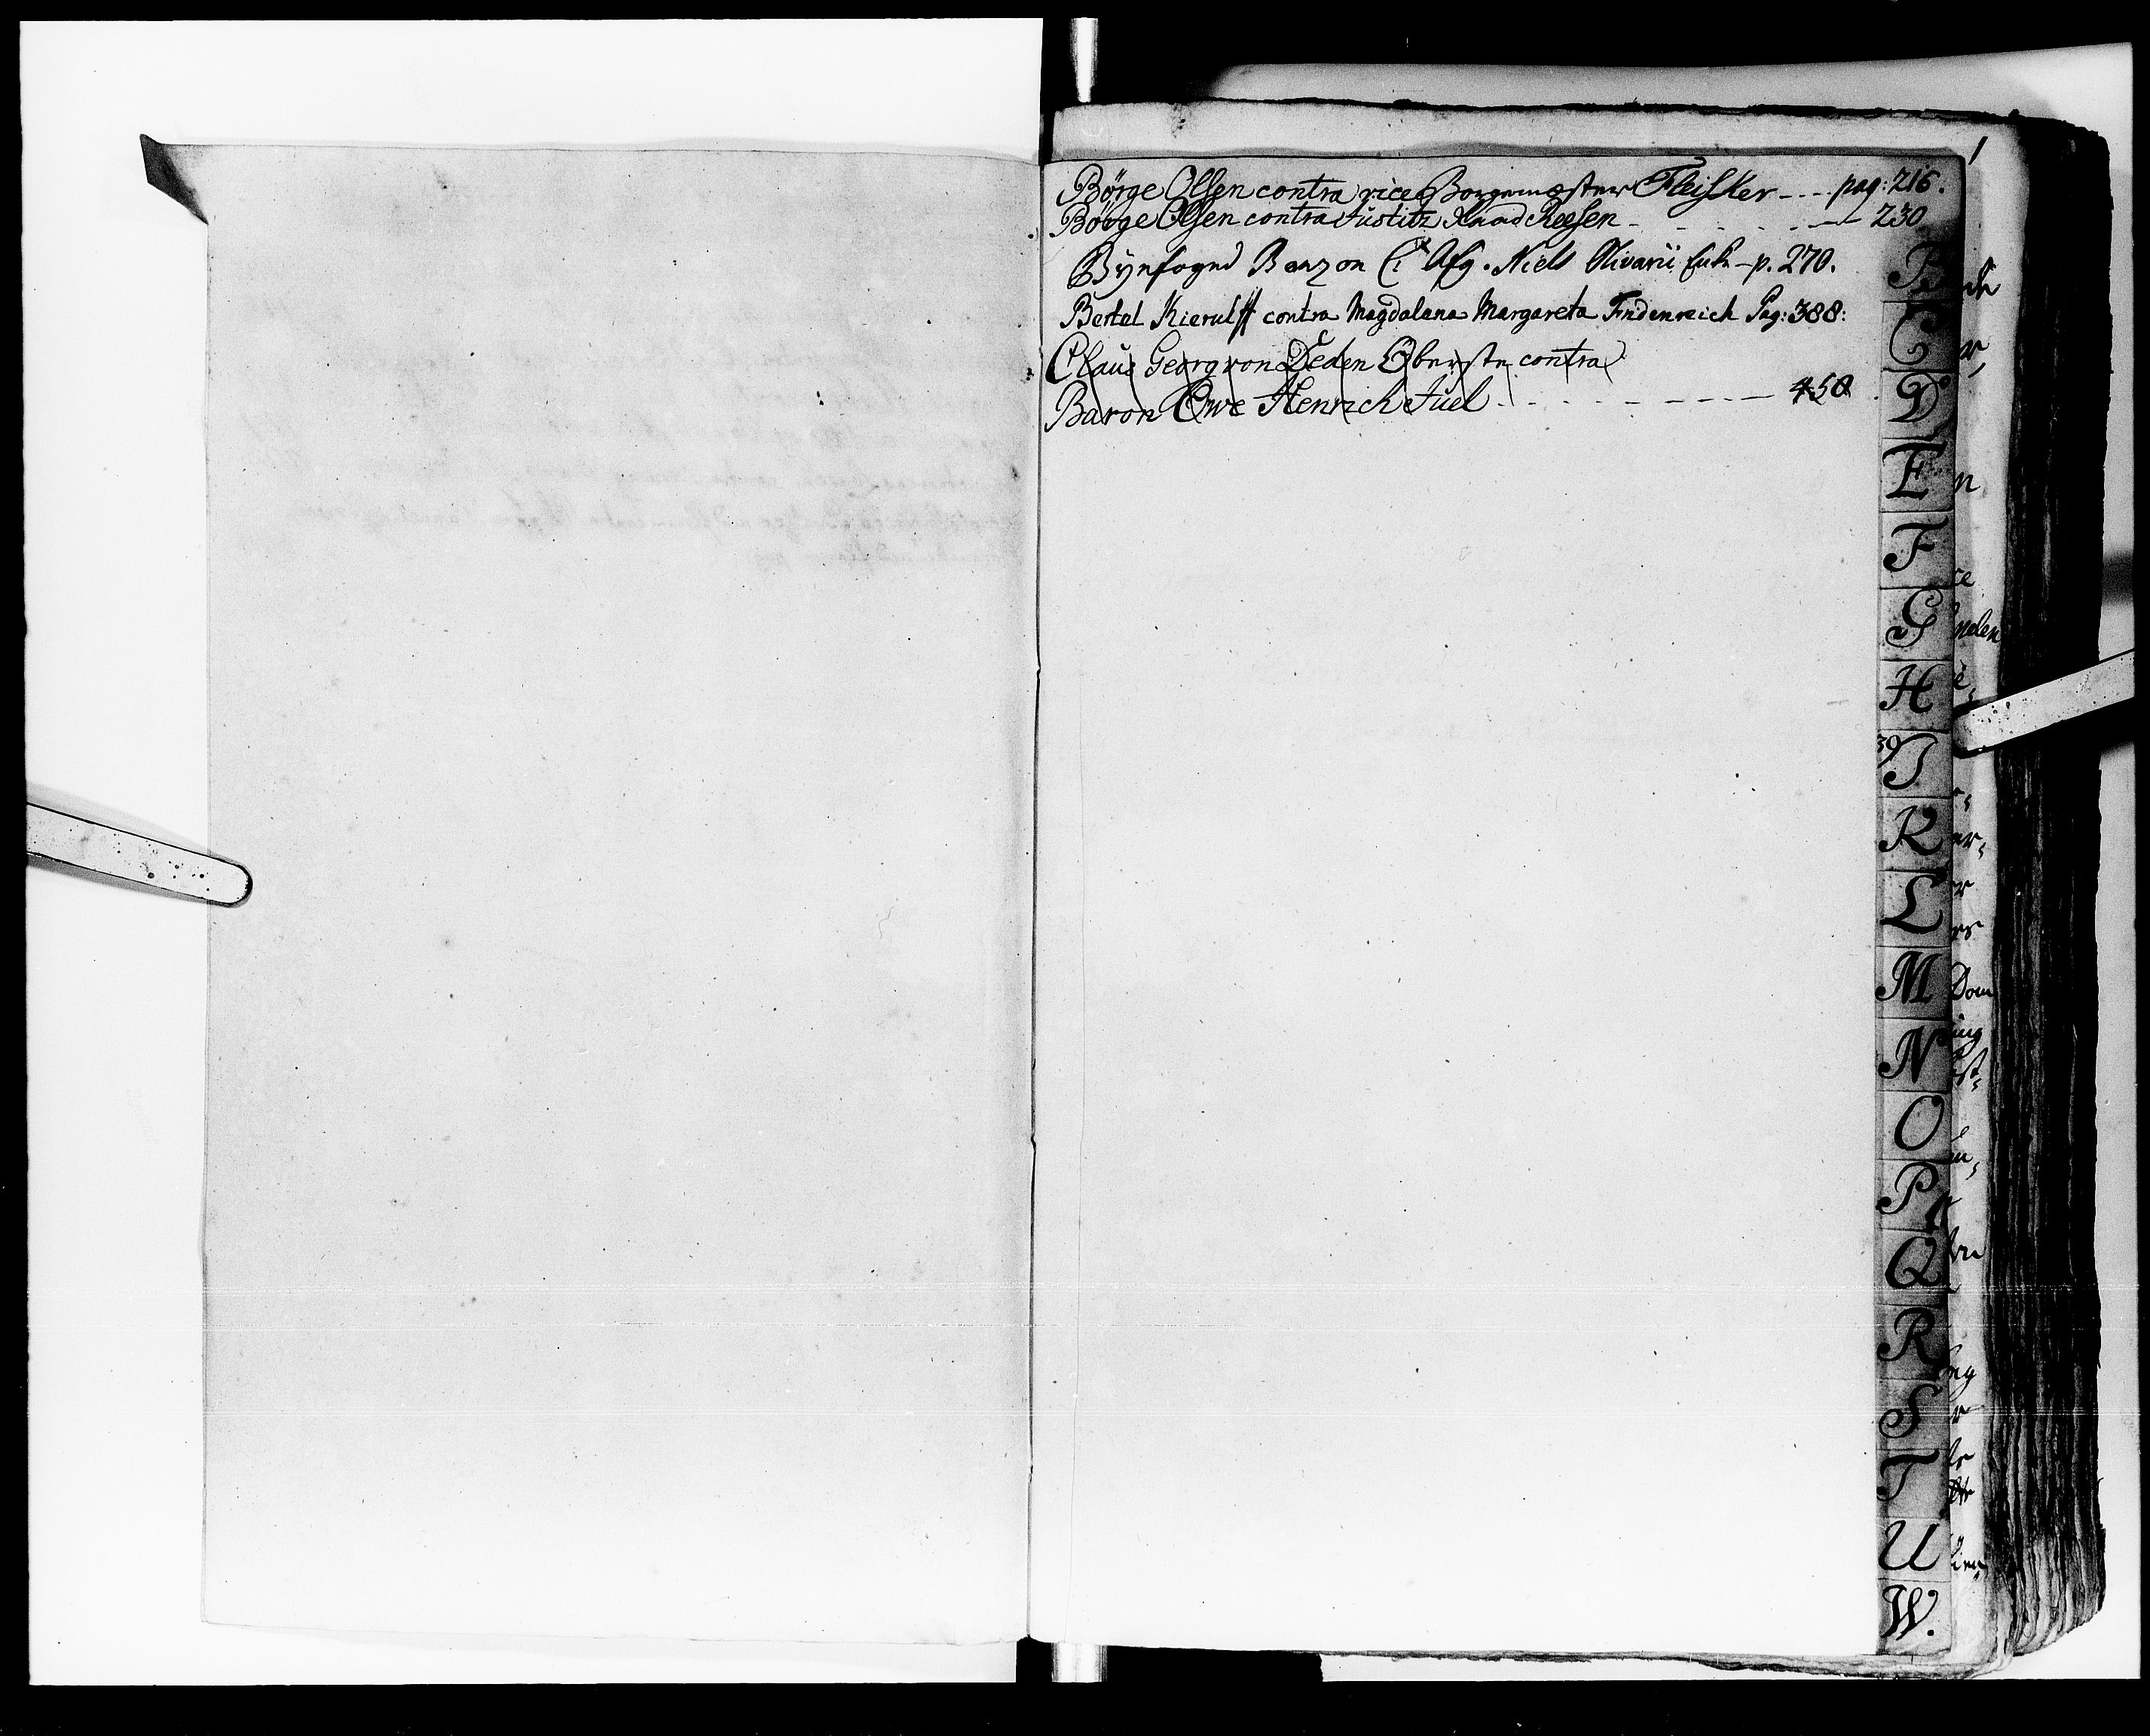 1
Börge Olsen contra vice Borgemester Fleisker --- pag: 216.
Börge Olsen contra Justitz Knud Reesen - - - - - 230
Byefoged Benzon Ctr Afg. Niels Olivarii Enke - p. 270.
Bertel Kierulff contra Magdalena Margareta Fridenreich Pag: 388:
Claus Georg von Deden Oberste contra
Baron Owe Henrich Juel - - - - - - - 450
B
C
D
E
F
G
H
I
K
L
M
N
O
P
Q
R
S
T
U
W.